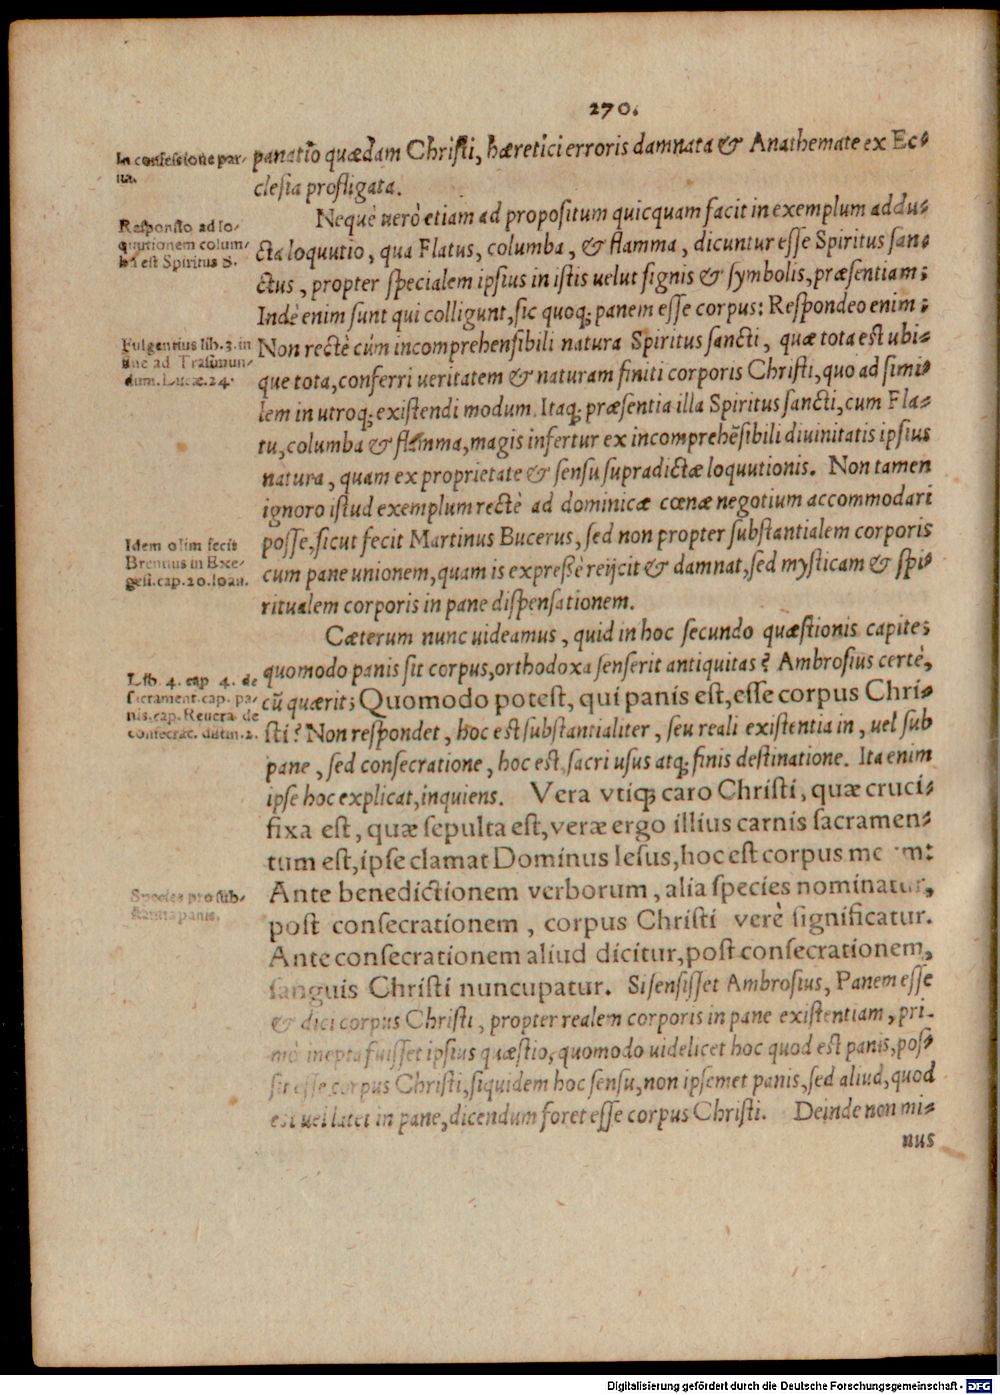 270.
In confessione par-
ua.
panatio quædam Christi, hæretici erroris damnata & Anathemate ex Ec-
clesia profligata.
Responsio ad lo-
quutionem colum-
ba est Spiritus S.
Nequè uerò etiam ad propositum quicquam facit in exemplum addu-
cta loquutio, qua Flatus, columba, & flamma, dicuntur esse Spiritus san-
ctus, propter specialem ipsius in istis uelut signis & symbolis, præsentiam;
Indè enim sunt qui colligunt, sic quoq; panem esse corpus: Respondeo enim;
Fulgentius lib. 3. in
fine ad Trasimun-
dum. Lucæ. 24.
Non rectè cúm incomprehensibili natura Spiritus sancti, quæ tota est ubi-
que tota, conferri ueritatem & naturam finiti corporis Christi, quo ad simi-
lem in utroq; existendi modum. Itaq; præsentia illa Spiritus sancti, cum Fla-
tu, columba & flamma, magis infertur ex incomprehēsibili diuinitatis ipsius
natura, quam ex proprietate & sensu supradictæ loquutionis. Non tamen
ignoro istud exemplum rectè ad dominicæ cœnæ negotium accommodari
Idem olim fecit
Brentius in Exe-
gesi. cap. 20. Ioan.
posse, sicut fecit Martinus Bucerus, sed non propter substantialem corporis
cum pane unionem, quam is expreßè reijcit & damnat, sed mysticam & spi-
ritualem corporis in pane dispensationem.
Cæterum nunc uideamus, quid in hoc secundo quæstionis capite;
quomodo panis sit corpus, orthodoxa senserit antiquitas? Ambrosius certè,
Lib. 4. cap 4. de
sacrament. cap. pa-
nis. cap. Reuera de
consecrac. distin. 2.
cū quærit; Quomodo potest, qui panis est, esse corpus Chri-
sti? Non respondet, hoc est substantialiter, seu reali existentia in, uel sub
pane, sed consecratione, hoc est, sacri usus atq; finis destinatione. Ita enim
ipse hoc explicat, inquiens. Vera vtiq; caro Christi, quæ cruci-
fixa est, quæ sepulta est, veræ ergo illius carnis sacramen-
tum est, ipse clamat Dominus Iesus, hoc est corpus
Species pro sub-
stantia panis.
Ante benedictionem verborum, alia species nominatur,
post consecrationem, corpus Christi verè significatur.
Ante consecrationem aliud dicitur, post consecrationem,
sanguis Christi nuncupatur. Si sensisset Ambrosius, Panem esse
& dici corpus Christi, propter realem corporis in pane existentiam, pri-
mò inepta fuisset ipsius quæstio, quomodo uidelicet hoc quod est panis, pos-
sit esse corpus Christi, siquidem hoc sensu, non ipsemet panis, sed aliud, quod
est uel latet in pane, dicendum foret esse corpus Christi. Deinde non mi-
nus
Digitalisierung gefördert durch die Deutsche Forschungsgemeinschaft - DFG